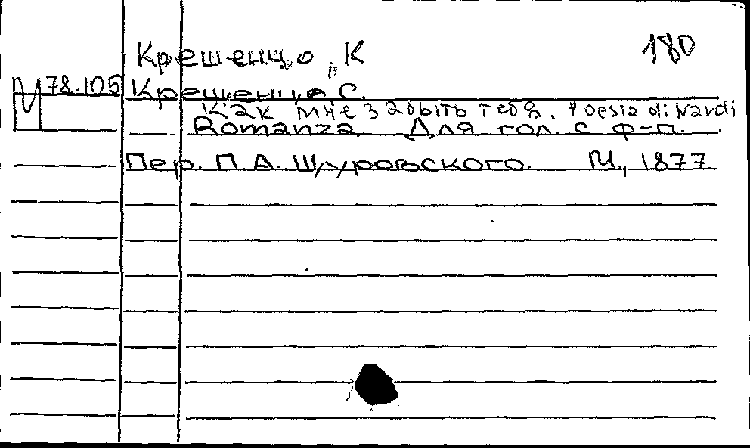 Крешенцо, К 180
М 78.105 Крещенцо С.
Как мне забыть тебя. Poesia di Nardi
Romanza Для гол. с ф-п.
Пер. П.А. Щуровского. М., 1877